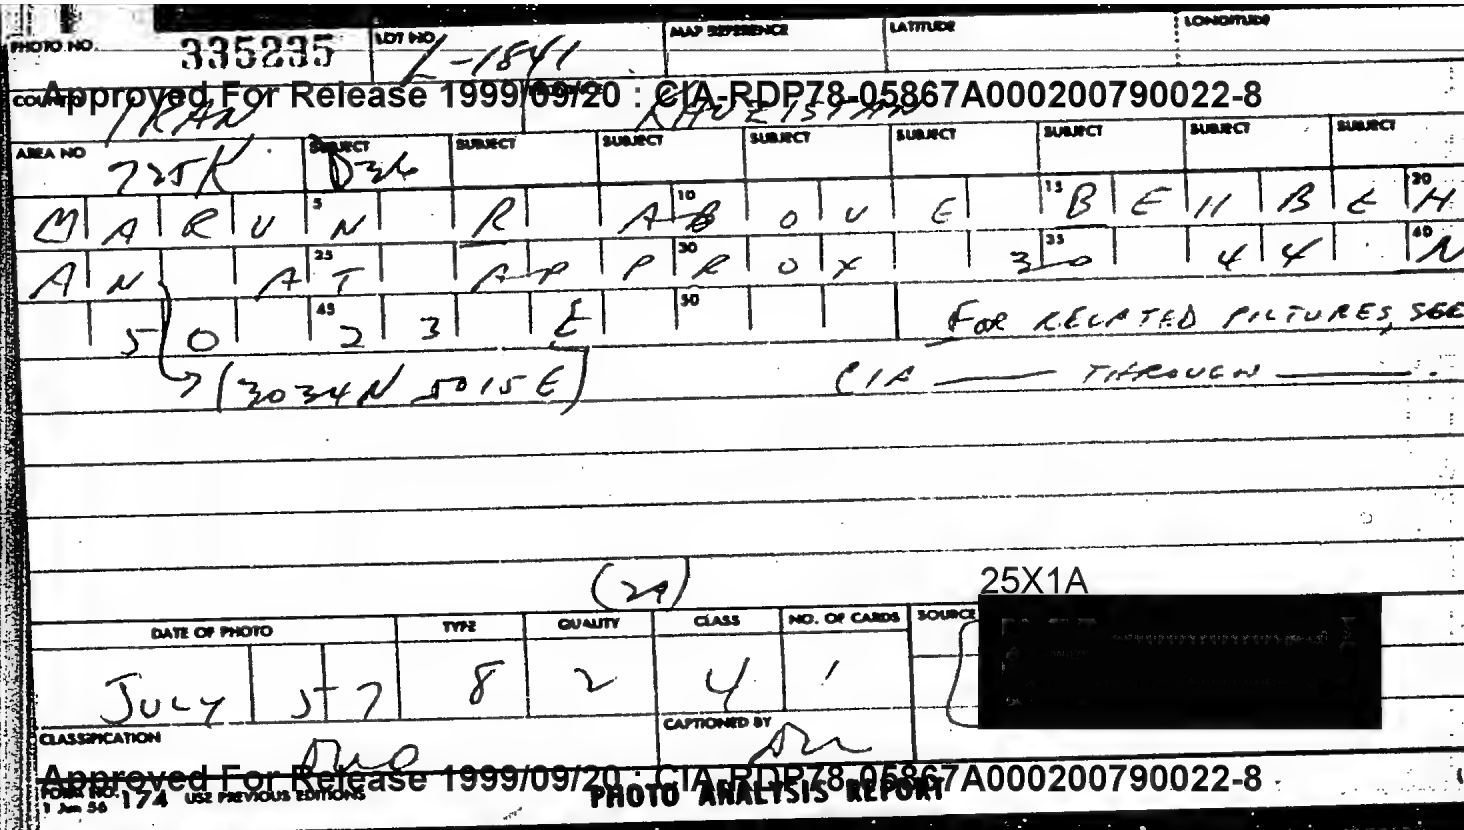 PHOTO NO. 335235 LOT NO. 2-1841 MAP REFERENCE LATITUDE LONGITUDE
Approved For Release 1999/09/20 : CIA-RDP78-05867A000200790022-8
COUNTRY IRAN KHUZISTAN
AREA NO 725K SUBJECT D36 SUBJECT SUBJECT SUBJECT SUBJECT SUBJECT SUBJECT SUBJECT
5 10 15 20
MARUN R ABOVE BEHBEH
25 30 35 40
AN AT APPROX 30 44 N
45 50
50 23 E FOR RELATED PICTURES, SEE
(3034N 5015E) CIA — THROUGH —.
(29)
25X1A
DATE OF PHOTO TYPE QUALITY CLASS NO. OF CARDS SOURCE
JULY 57 8 2 4 1
CLASSIFICATION CAPTIONED BY
Approved For Release 1999/09/20 : CIA-RDP78-05867A000200790022-8
FORM NO. 174 USE PREVIOUS EDITIONS PHOTO ANALYSIS REPORT
1 Jun 56